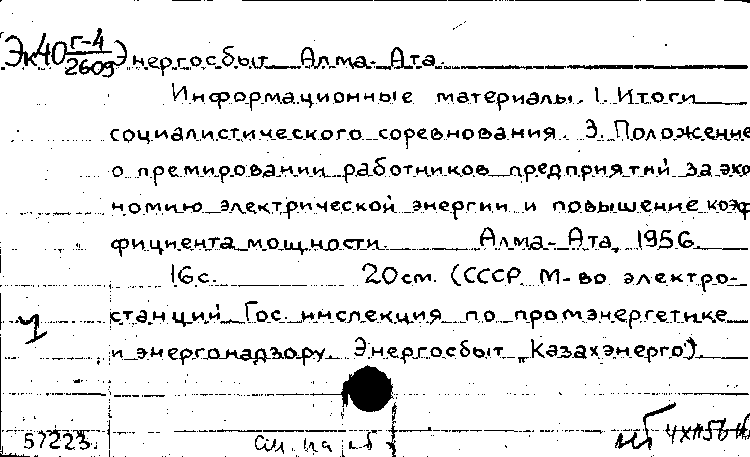 Эк40 Г-4/2609 Энергосбыт Алма-Ата.
Информационные материалы. 1. Итоги
социалистического соревнования. 3. Положение
о премировании работников предприятий за эко
номию электрической энергии и повышение коэф
фициента мощности. Алма-Ата, 1956.
16с. 20см. (СССР. М-во электро-
станций. Гос. инспекция по промэнергетике
и энергонадзору. Энергосбыт „Казахэнерго").
57223.
см. на об